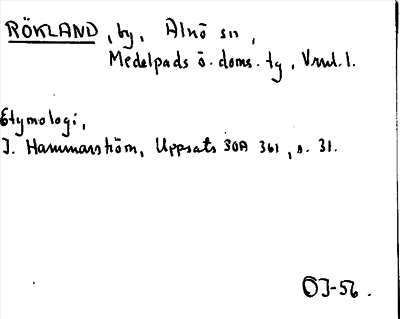 RÖKLAND, by, Alnö sn,
Medelpads ö. doms. tg, Vrnl. l.
Etymologi,
J. Hammarström, Uppsats 30A 361, s. 31.
ÖJ-56.